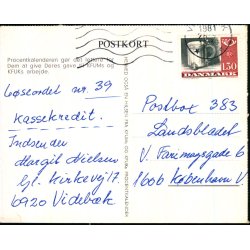 1981
POSTKORT
130
DANMARK
Procentkalenderen gør det lettere for
Dem at give Deres gave til KFUMs og
KFUKs arbejde.
Løseordet nr. 39
Kassekredit.
Indsender
Margit Nielsen
Gl. Kirkevej 17
6920 Videbæk
Postbox 383
Landsbladet
V. Farimagsgade 6
1600 København V